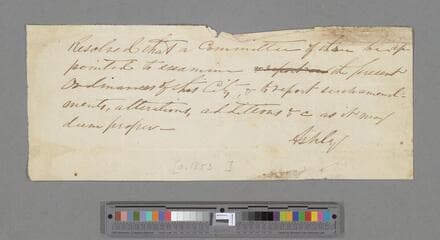 Resolved that a Committee of three be ap
pointed to examine report on the present
Ordinances of this City, & to report such amend-
ments, alterations, additions & c as it may
deem proper—
Ashley